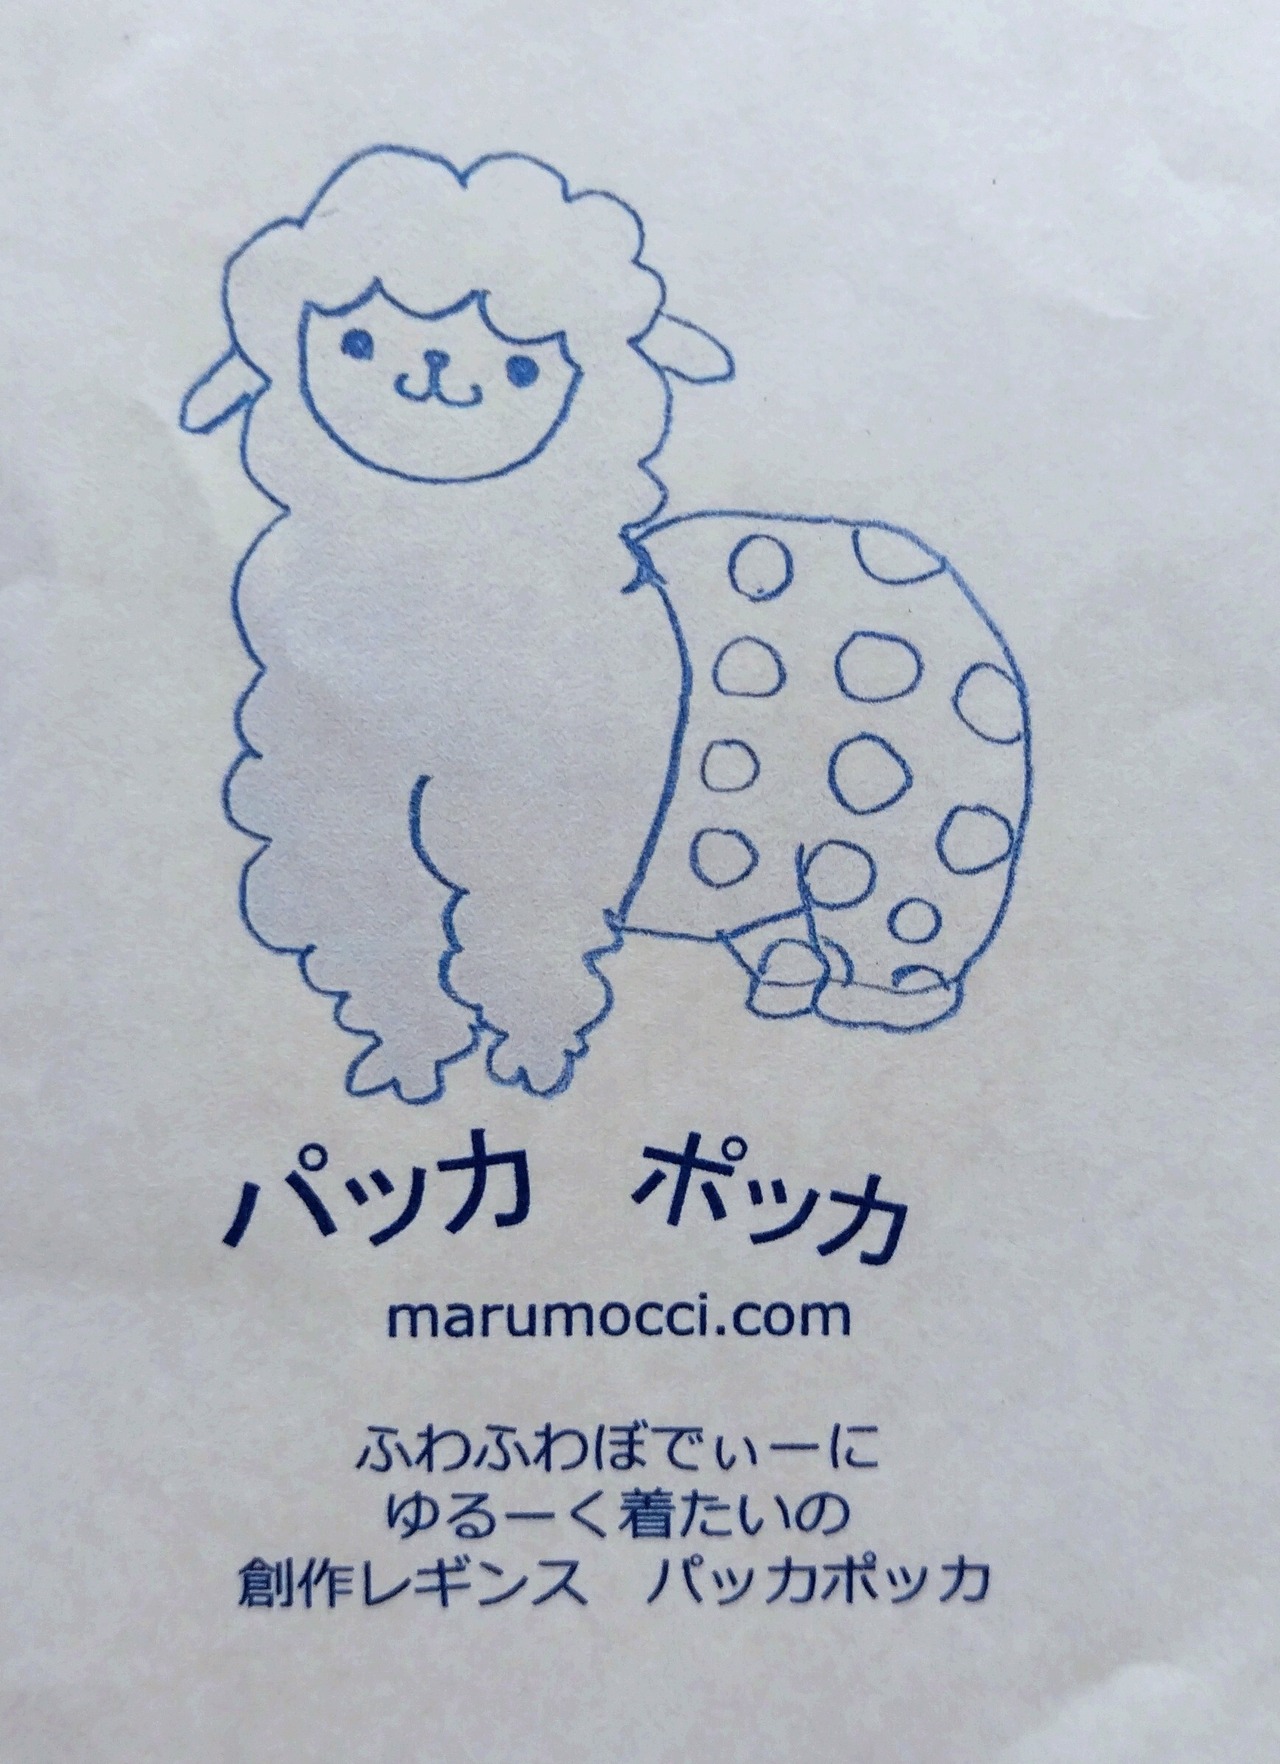 パッカ　ポッカ
marumocci.com
ふわふわぼでぃーに
ゆるーく着たいの
創作レギンス　パッカポッカ